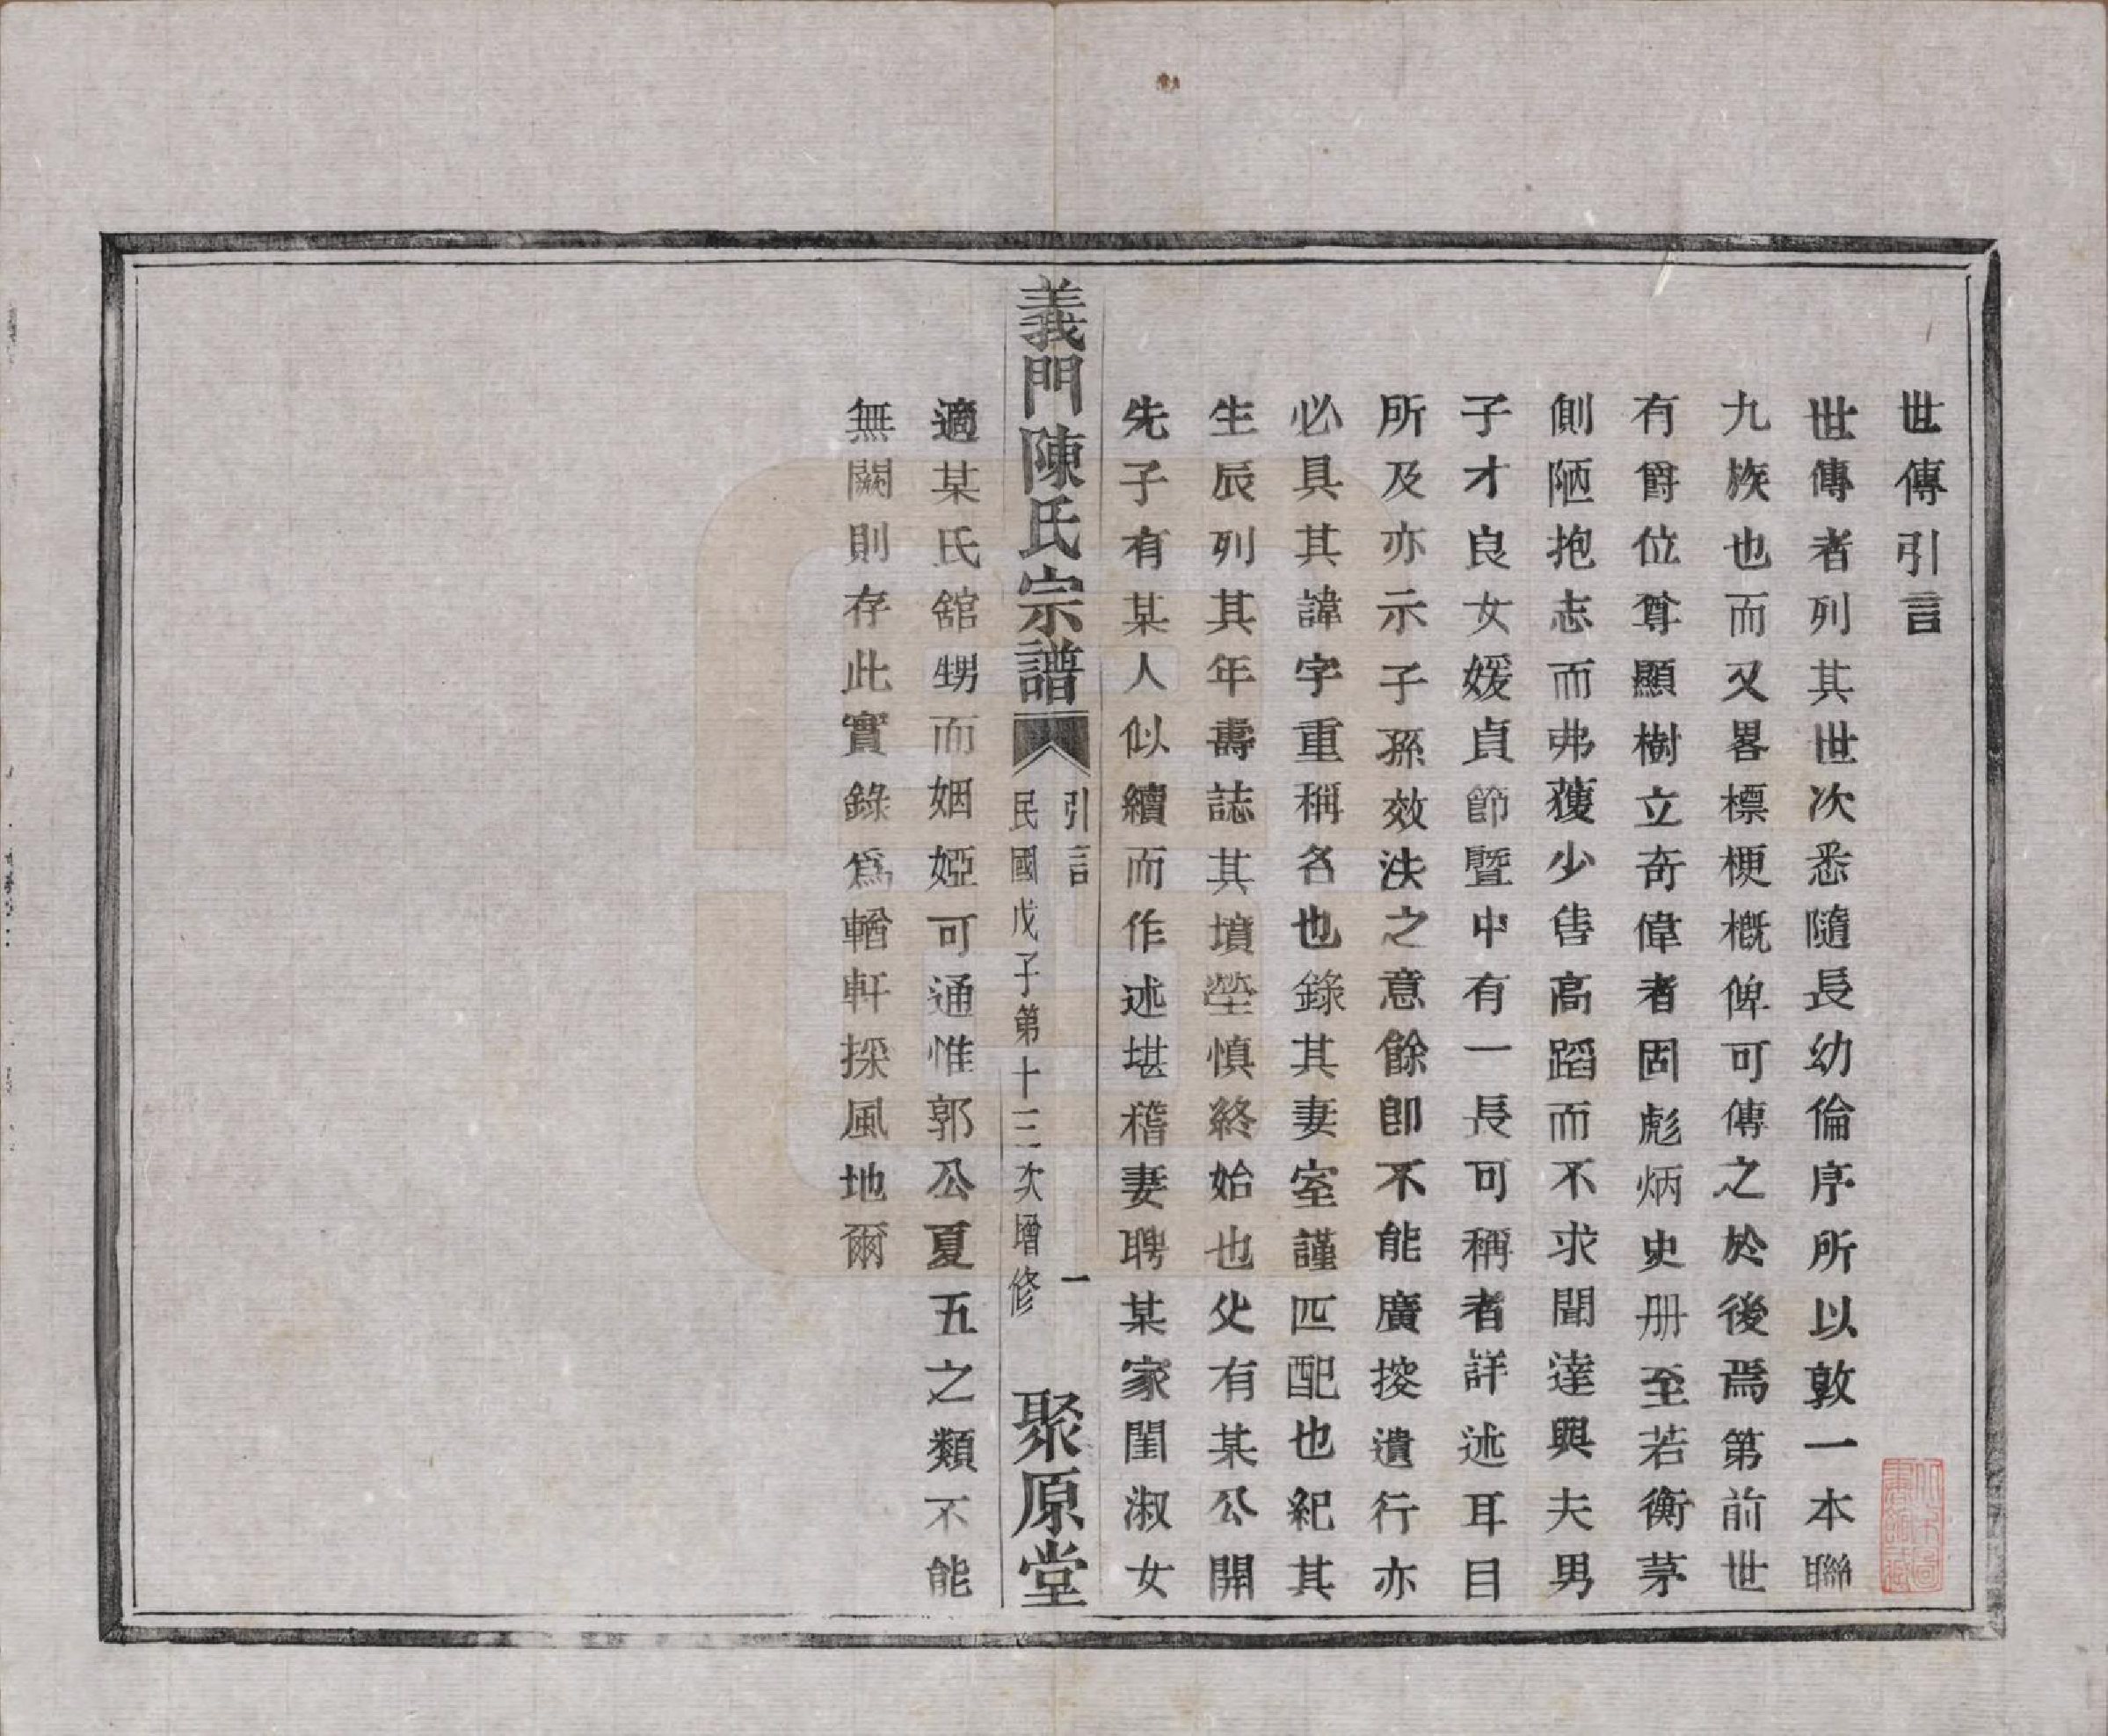 世傳引言
世傳者列其世次悉隨長幼倫序所以敦一本聯
九族也而又畧標梗概俾可傳之於後焉第前世
有爵位尊顯樹立奇偉者固彪炳史册至若衡茅
側陋抱志而弗獲少售高蹈而不求聞達與夫男
子才良女媛貞節曁中有一長可稱者詳述耳目
所及亦示子孫效法之意餘卽不能廣搜遺行亦
必具其諱字重稱名也錄其妻室謹匹配也紀其
生辰列其年壽誌其墳塋愼終始也父有某公開
先子有某人似續而作述堪稽妻聘某家閨淑女
義門陳氏宗譜
引言
一
民國戊子第十三次增修
聚原堂
適某氏舘甥而姻婭可通惟郭公夏五之類不能
無闕則存此實錄爲輶軒採風地爾